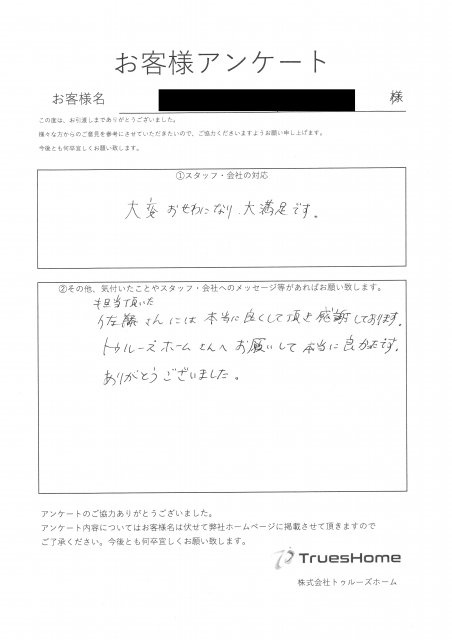 お客様アンケート
お客様名 様
この度は、お引渡しまでありがとうございました。
様々な方からのご意見を参考にさせていただきたいので、ご協力くださいますようお願い申し上げます。
今後とも何卒宜しくお願い致します。
①スタッフ・会社の対応
大変 おせわになり、大満足です。
②その他、気付いたことやスタッフ・会社へのメッセージ等があればお願い致します。
担当頂いた
佐藤さんには 本当に良くして頂き 感謝しております。
トゥルーズホームさんへ お願いして 本当に良かったです。
ありがとうございました。
アンケートのご協力ありがとうございました。
アンケート内容についてはお客様名は伏せて弊社ホームページに掲載させて頂きますので
ご了承ください。今後とも何卒宜しくお願い致します。
TruesHome
株式会社トゥルーズホーム